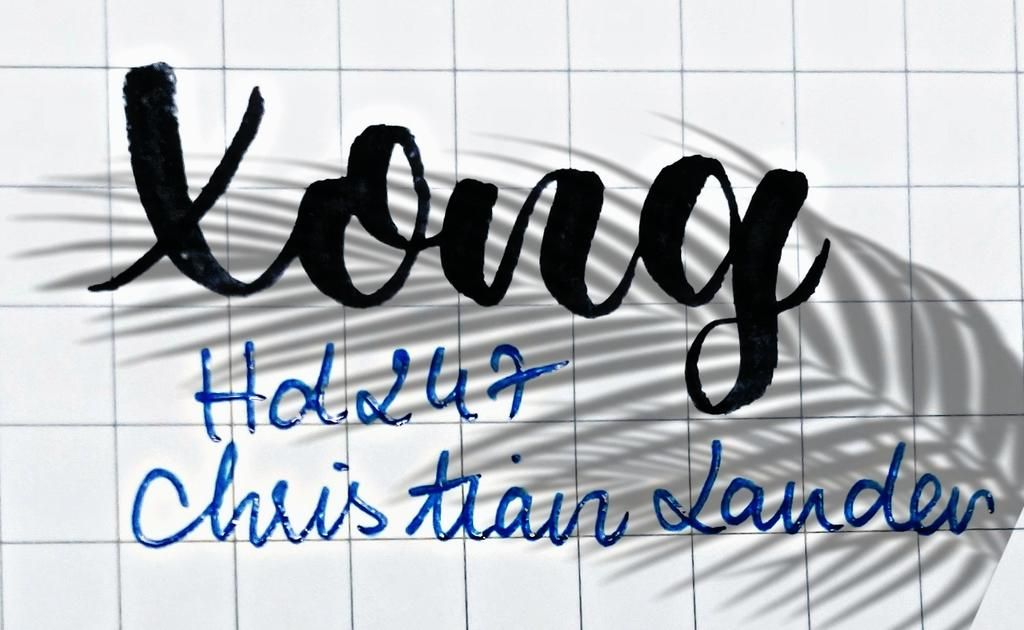 Long
Hd247
Christian Lander